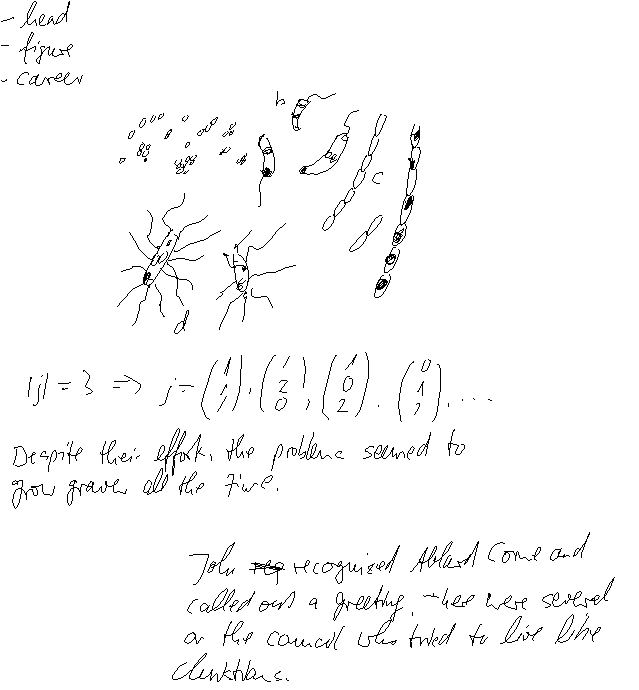 - head
- figure
- career
b
c
d
|j| = 3 => j = (1 1 1), (1 2 0), (1 0 2), (0 1 2), ...
Despite their efforts, the problems seemed to
grow graver all the time.
John recognized Ablard Come and
called out a greeting, there were several
on the council who tried to live like
Christians.